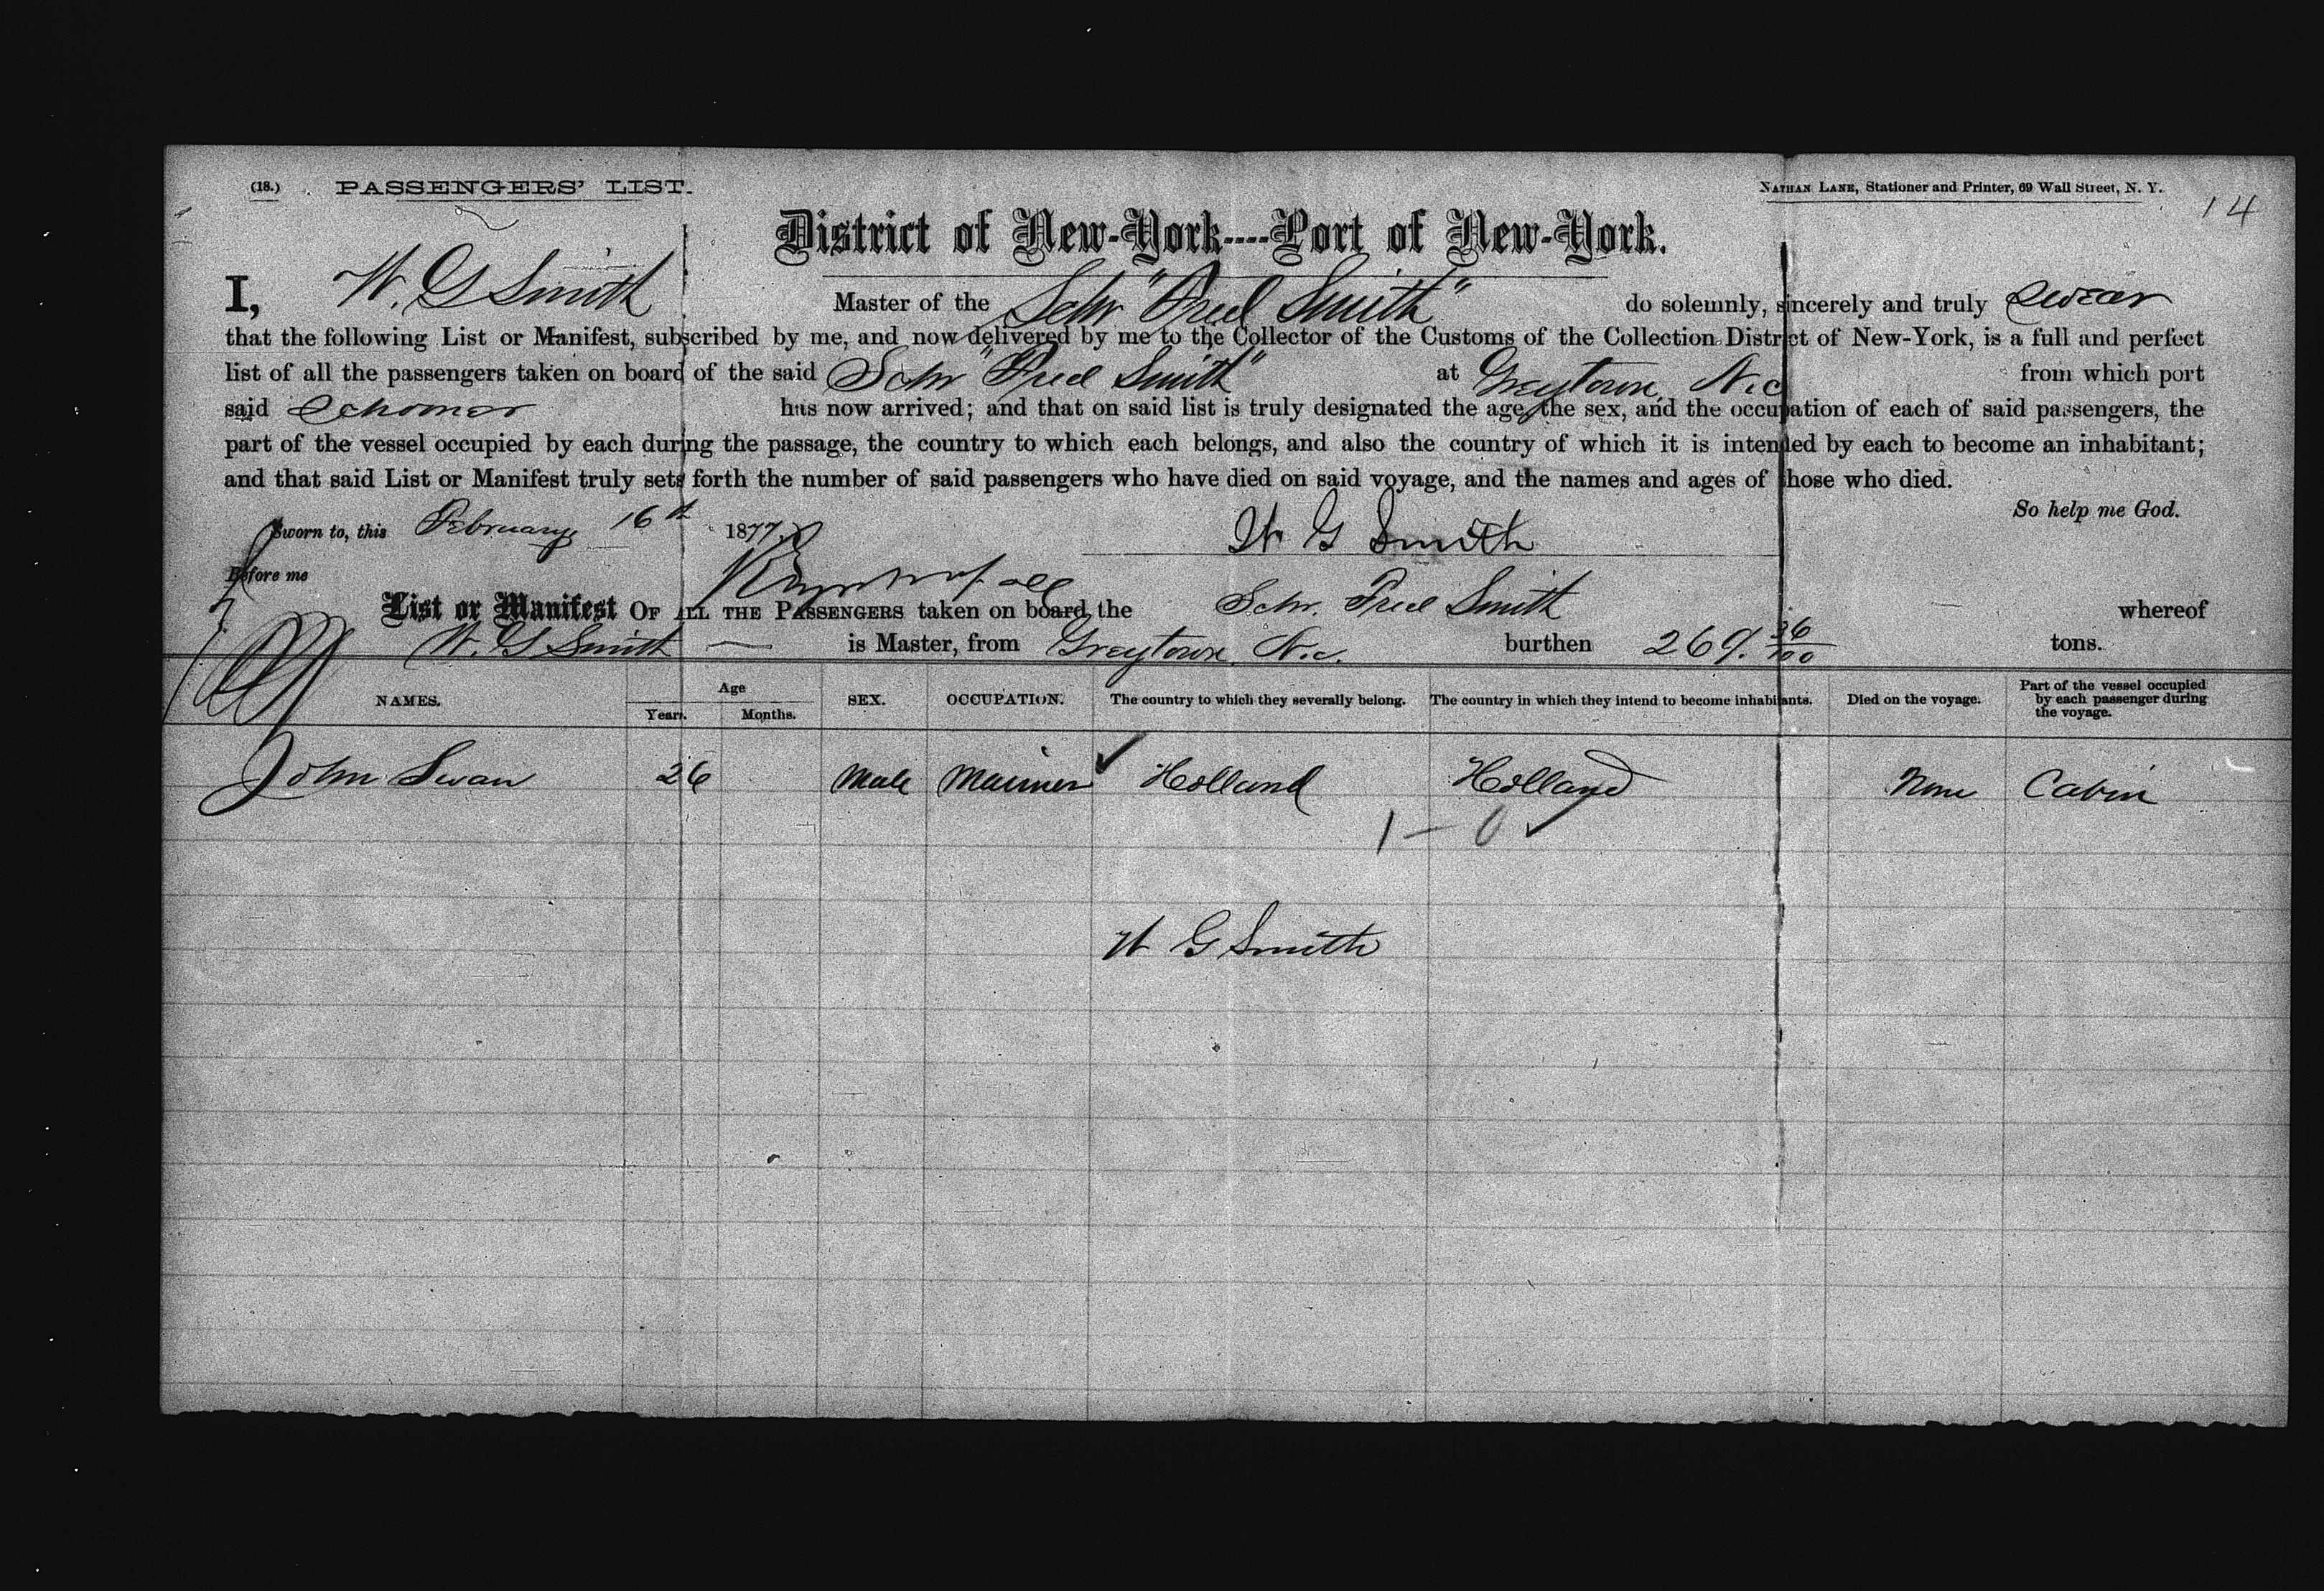 (18.) PASSENGERS' LIST.
NATHAN LANE, Stationer and Printer, 69 Wall Street, N. Y.
14
District of New-York----Port of New-York.
I, W. G Smith Master of the Schr "Fred Smith" do solemnly, sincerely and truly swear
that the following List or Manifest, subscribed by me, and now delivered by me to the Collector of the Customs of the Collection District of New-York, is a full and perfect
list of all the passengers taken on board of the said Schr "Fred Smith" at Greytown, Nic from which port
said Schooner has now arrived; and that on said list is truly designated the age, the sex, and the occupation of each of said passengers, the
part of the vessel occupied by each during the passage, the country to which each belongs, and also the country of which it is intended by each to become an inhabitant;
and that said List or Manifest truly sets forth the number of said passengers who have died on said voyage, and the names and ages of those who died.
So help me God.
Sworn to, this February 16th 1877
W G Smith
Before me
List or Manifest OF ALL THE PASSENGERS taken on board the Schr. Fred Smith whereof
W. G Smith is Master, from Greytown, Nic. burthen 269. 36/100 tons.
NAMES. Age Years. Months. SEX. OCCUPATION. The country to which they severally belong. The country in which they intend to become inhabitants. Died on the voyage. Part of the vessel occupied by each passenger during the voyage.
John Swan 26 Male Mariner Holland Holland None Cabin
1 - 0
W G Smith